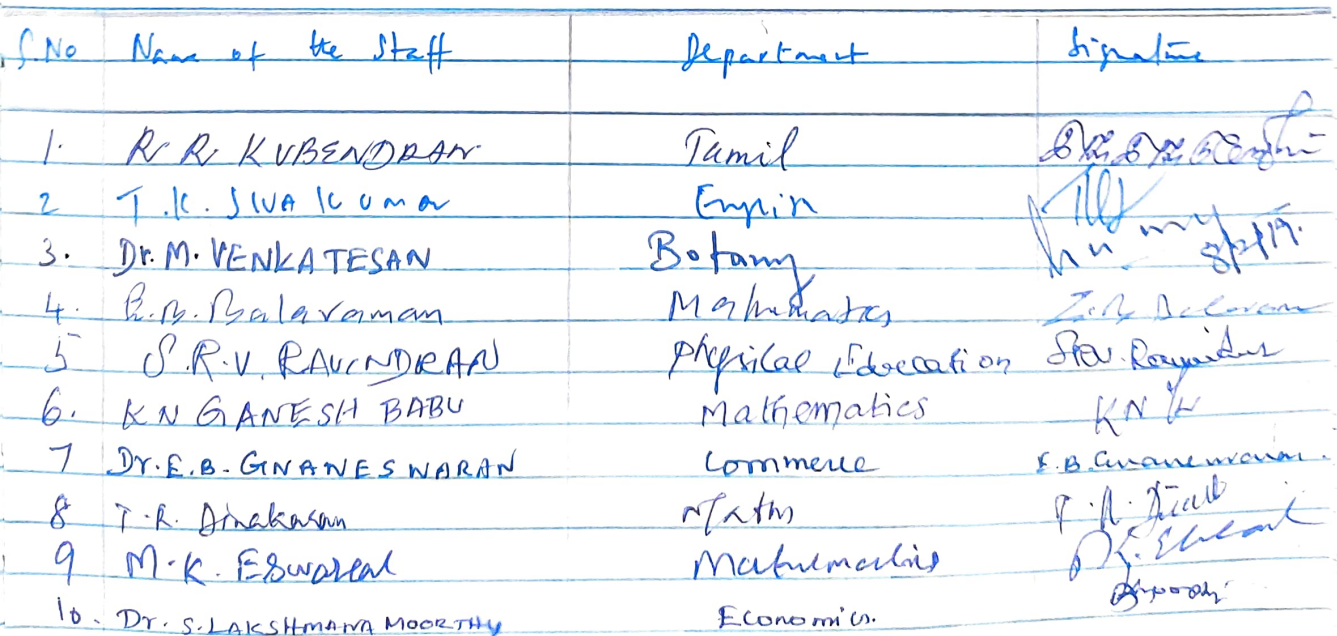 S.No Name of the Staff Department Signature
1. R R KUBENDRAN Tamil
2 T.K. SIVA KUMAR
3. Dr. M. VENKATESAN Botany
4. Balaraman Mathematics
5 S.R.V. RAVINDRAN Physical Education
6. KN GANESH BABU Mathematics KN
7 Dr. E.B. GNANESWARAN Commerce E.B. Gnaneswaran.
8 T.R. Dinakaran Maths
9 M.K. Mathematics
10. Dr. S. LAKSHMANA MOORTHY Economics.